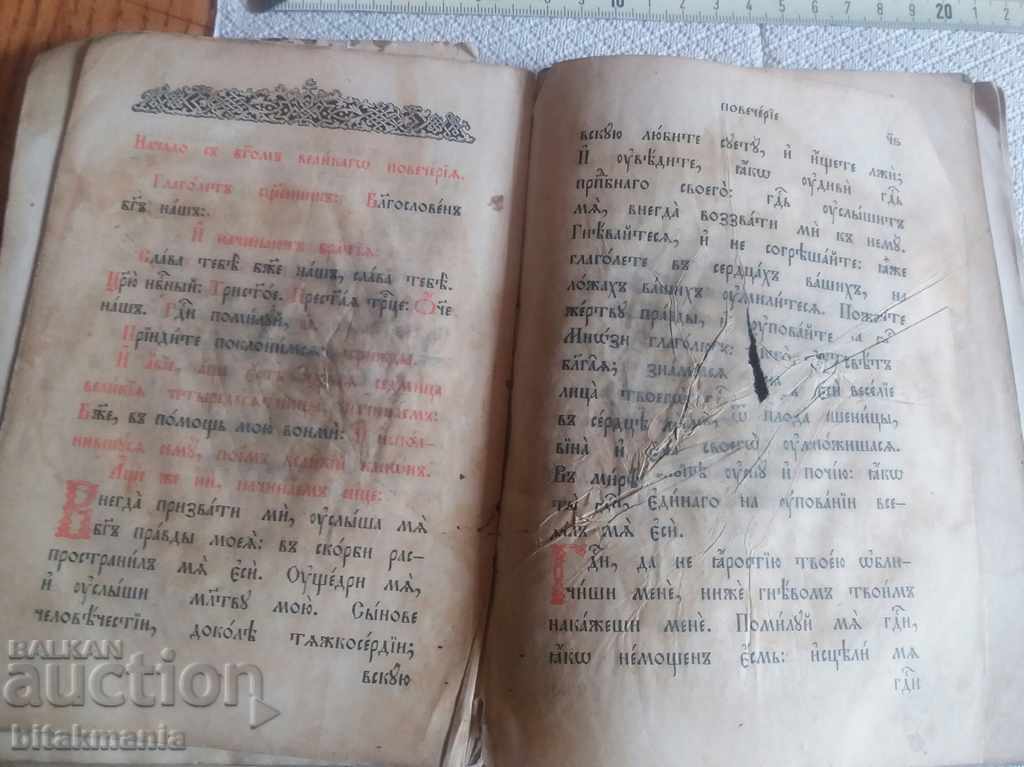 Начало съ бг҃омъ великагѡ повечерїѧ.
Глаголетъ сщ҃е́нникъ: Благословенъ
бг҃ъ нашъ:.
И҆ начинаютъ братїѧ:
Сла́ва тебѣ̀ бж҃е нашъ, слава тебѣ̀.
Цр҃ю нб҃ный: Трист҃ое. Прест҃аѧ трⷪ҇це: Ѻ҆́ч҃е
нашъ. Гдⷭ҇и помилуй,
Прїидите поклонимсѧ:
И҆ а҆́бїе, а҆́ще є҆́сть седмица
великїѧ четыредесѧтницы, начинаемъ:
Бж҃е, въ помощь мою вонми: И҆ испол-
нившусѧ семꙋ̀, поемъ великїй канѡнъ.
А҆́ще же ни, начинаемъ сице:
Внегда̀ призвати ми, ᲂу҆слыша мѧ̀
бг҃ъ пра́вды моеѧ̀: въ ско́рби рас-
пространилъ мѧ̀ є҆сѝ. Оу҆ще́дри мѧ̀,
и҆ ᲂу҆слыши мл҃твꙋ мою. Сынове
человѣ́честїи, доколѣ̀ тѧжкосе́рдїи;
вскую
повече́рїе
ч҃в
вскую лю́бите суетꙋ̀, и҆ и҆́щете лжѝ;
И҆ ᲂу҆вѣ́дите, ꙗ҆́кѡ ᲂу҆дивѝ гдⷭ҇ь
прпⷣбнаго своего̀: гдⷭ҇ь ᲂу҆слы́шитъ
мѧ̀, внегда̀ воззвати мѝ къ немꙋ.
Гнѣ́вайтесѧ, и҆ не согрѣша́йте: ꙗ҆́же
глаго́лете въ сердца́хъ ва́шихъ, на
ло́жахъ ва́шихъ ᲂу҆мили́тесѧ. Пожрите
же́ртву правды, и҆ ᲂу҆повайте на гдⷭ҇а
Мно́зи глаго́лютъ:
бл҃га́ѧ; знаменасѧ
лица̀ твоегѡ̀ є҆сѝ весе́лїе
въ се́рдцѣ мое́мъ, Ѿ плода̀ пшеницы,
вїна̀ и҆ своегѡ̀ ᲂу҆мно́жишасѧ.
Въ ми́рѣ ᲂу҆снꙋ̀ и҆ почїю: ꙗ҆́кѡ
ты̀ гдⷭ҇и, є҆ди́наго на ᲂу҆пова́нїи все-
ли́лъ мѧ̀ є҆сѝ.
Гдⷭ҇и, да не ꙗ҆́ростїю твое́ю ѡ҆бли-
чи́ши менѐ, нижѐ гнѣ́вомъ твои́мъ
нака́жеши менѐ. Поми́луй мѧ̀ гдⷭ҇и,
ꙗ҆́кѡ не́мощенъ є҆́смь: и҆сцѣлѝ мѧ̀
гдⷭ҇и
10
20
BALKAN
auction
bitakmania